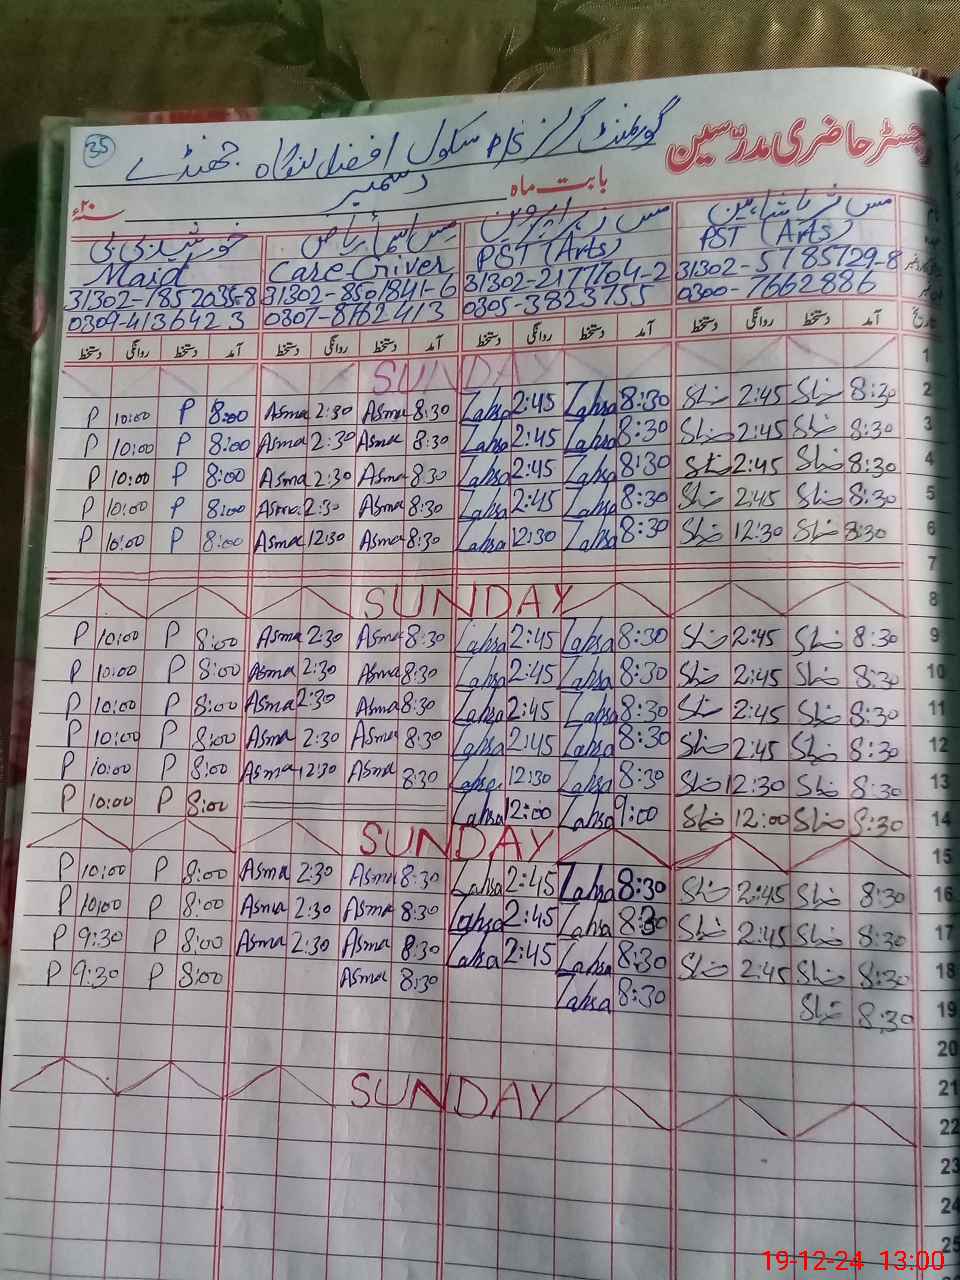 35
رجسٹر حاضری مدرّسین
گورنمنٹ گرلز P/S سکول افضل لنگاہ جھنڈے
بابت ماہ دسمبر ۲۰ء
خورشید بی بی مس اسماء ریاض مس زہرا پروین مس
Maid Care Giver PST (Arts) PST (Arts)
31302-1852035-8 31302-8501841-6 31302-2177104-2 31302-5785729-8
0309-4136423 0307-8762413 0305-3823755 0300-7662886
دستخط روانگی دستخط آمد دستخط روانگی دستخط آمد دستخط روانگی دستخط آمد دستخط روانگی دستخط آمد تاریخ
SUNDAY 1
P 10:00 P 8:00 Asma 2:30 Asma 8:30 Zahsa 2:45 Zahsa 8:30 2:45 8:30 2
P 10:00 P 8:00 Asma 2:30 Asma 8:30 Zahsa 2:45 Zahsa 8:30 2:45 8:30 3
P 10:00 P 8:00 Asma 2:30 Asma 8:30 Zahsa 2:45 Zahsa 8:30 2:45 8:30 4
P 10:00 P 8:00 Asma 2:30 Asma 8:30 Zahsa 2:45 Zahsa 8:30 2:45 8:30 5
P 10:00 P 8:00 Asma 12:30 Asma 8:30 Zahsa 12:30 Zahsa 8:30 12:30 8:30 6
7
SUNDAY 8
P 10:00 P 8:00 Asma 2:30 Asma 8:30 Zahsa 2:45 Zahsa 8:30 2:45 8:30 9
P 10:00 P 8:00 Asma 2:30 Asma 8:30 Zahsa 2:45 Zahsa 8:30 2:45 8:30 10
P 10:00 P 8:00 Asma 2:30 Asma 8:30 Zahsa 2:45 Zahsa 8:30 2:45 8:30 11
P 10:00 P 8:00 Asma 2:30 Asma 8:30 Zahsa 2:45 Zahsa 8:30 2:45 8:30 12
P 10:00 P 8:00 Asma 12:30 Asma 8:30 Zahsa 12:30 Zahsa 8:30 12:30 8:30 13
P 10:00 P 8:00 Zahsa 12:00 Zahsa 9:00 12:00 8:30 14
SUNDAY 15
P 10:00 P 8:00 Asma 2:30 Asma 8:30 Zahsa 2:45 Zahsa 8:30 2:45 8:30 16
P 10:00 P 8:00 Asma 2:30 Asma 8:30 Zahsa 2:45 Zahsa 8:30 2:45 8:30 17
P 9:30 P 8:00 Asma 2:30 Asma 8:30 Zahsa 2:45 Zahsa 8:30 2:45 8:30 18
P 9:30 P 8:00 Asma 8:30 Zahsa 8:30 8:30 19
20
21
SUNDAY 22
23
24
25
19-12-24 13:00